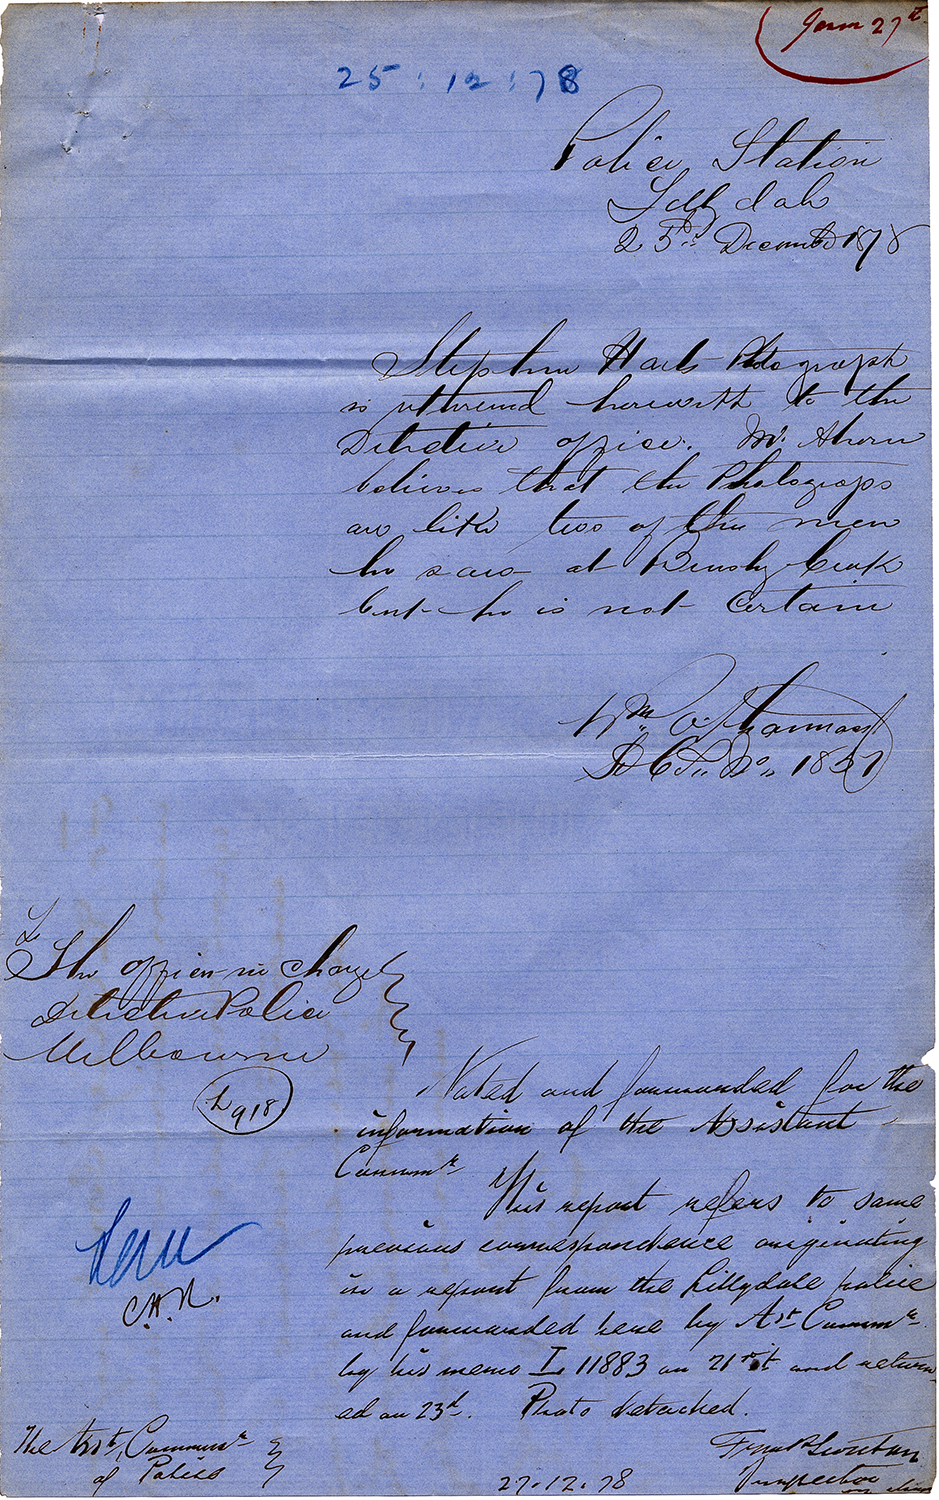 25:12:78
Police Station
Lillydale
25th December 1878
Stephen Hart's Photograph
is returned herewith to the
Detective office. Mr. Ahern
believes that the Photograps
are like two of the men
he saw at Brushy Creek
but he is not Certain
Wm
No 1827
To
The officer in charge
Detective Police
Melbourne
L 918
Noted and forwarded for the
information of the Assistant
Commr
This report refers to some
previous correspondence originating
in a report from the Lillydale police
and forwarded here by Asst Commr
by his memo L 11883 on 21st and return
ed on 23d. Photo detached.
C.H.N.
The Asst Commr
of Police
27.12.78
Inspector